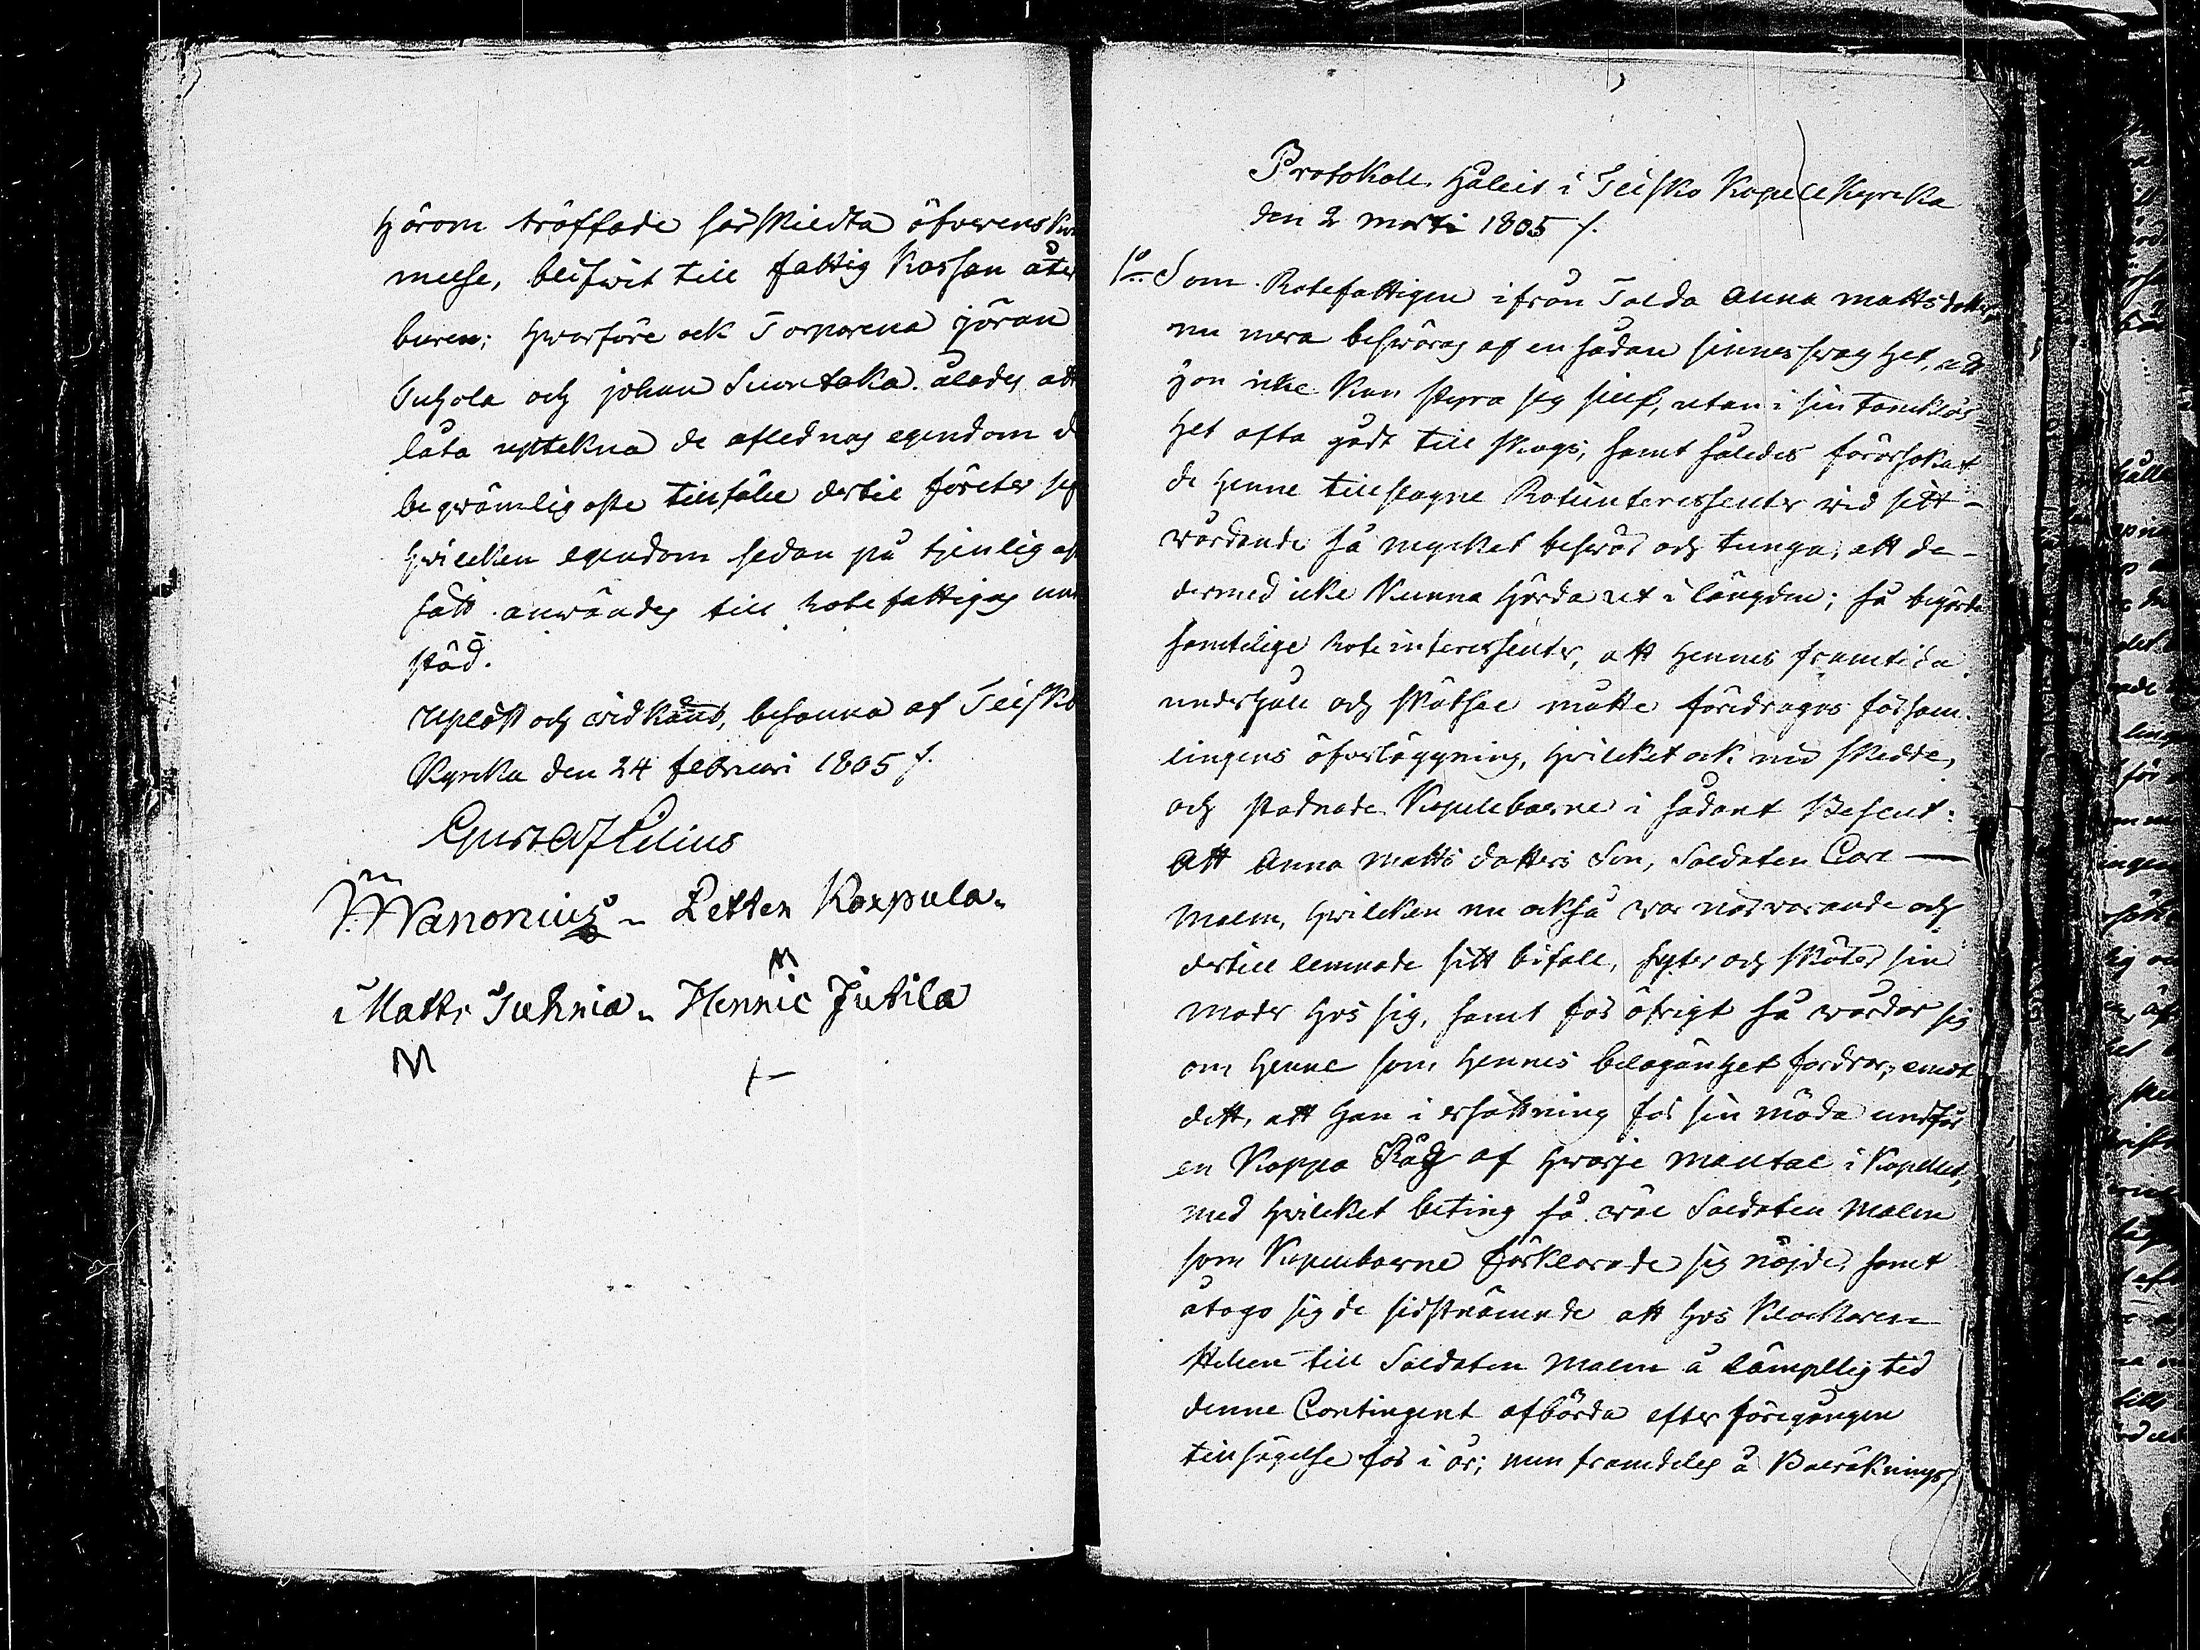 härom träffade särskildta öfverensko
melse, blifwit till fattig Kassan åter
buren; hwarföre ock Torparena Jöran
Tuhola och Johan Suontaka ålades att
låta upptekna de aflednas egendom d
beqwämligaste tillfälle dertil företer sig
hwilcken egendom sedan på tjenligaste
sätt anwändes till Rotefattigas un
stöd.
Upläst och widkänt, besanna af Teisko
Kyrcka den 24 februari 1805 /.
Gustaf Lilius
M Wanonius „ Petter Korpula „
M
Matts Juhnia „ Henric Jutila
M
Protokoll, hållit i Teisko Kapell Kyrcka
den 2 Martii 1805 /.
1o Som Rotefattigen ifrån Talda Anna Mattsdotter
nu mera beswäras af en sådan sinnes swaghet, att
hon icke kan styra sig sielf, utan i sin tanklös-
het ofta gådt till skogs, samt således förorsakat
de henne tillslagne Rotinteressenter wid sitt
wårdande så mycket beswär och tunga, att de
dermed icke kunna härda ut i längden; så begärde
samtelige Roteinteressenter, att hennes framtida
underhåll och skötsel måtte föredragas försam-
lingens öfwerläggning, hwilcket ock nu skedde,
och stadnade Kapellboerne i sådant Beslut:
Att Anna Matts dotters Son, Soldaten Carl
Malm, hwilcken nu också war närwarande och
dertill lemnade sitt bifall, syter och sköter sin
Moder hos sig, samt för öfrigt så wårdar sig
om henne som hennes belägenhet fordrar, emot
dett, att han i ersättning för sin möda undfår
en Kappa Råg af hwarje Mantal i Kapellet,
med hwilcket beting så wäl Soldaten Malm
som Kapellboerne förklarade sig nöjde, samt
åtogo sig de sidstnämnde att hos Klockaren
till Soldaten Malm å lämpelig tid
denne Contingent afbörda efter föregången
tillsägelse för i år; men framdeles å Balräknings